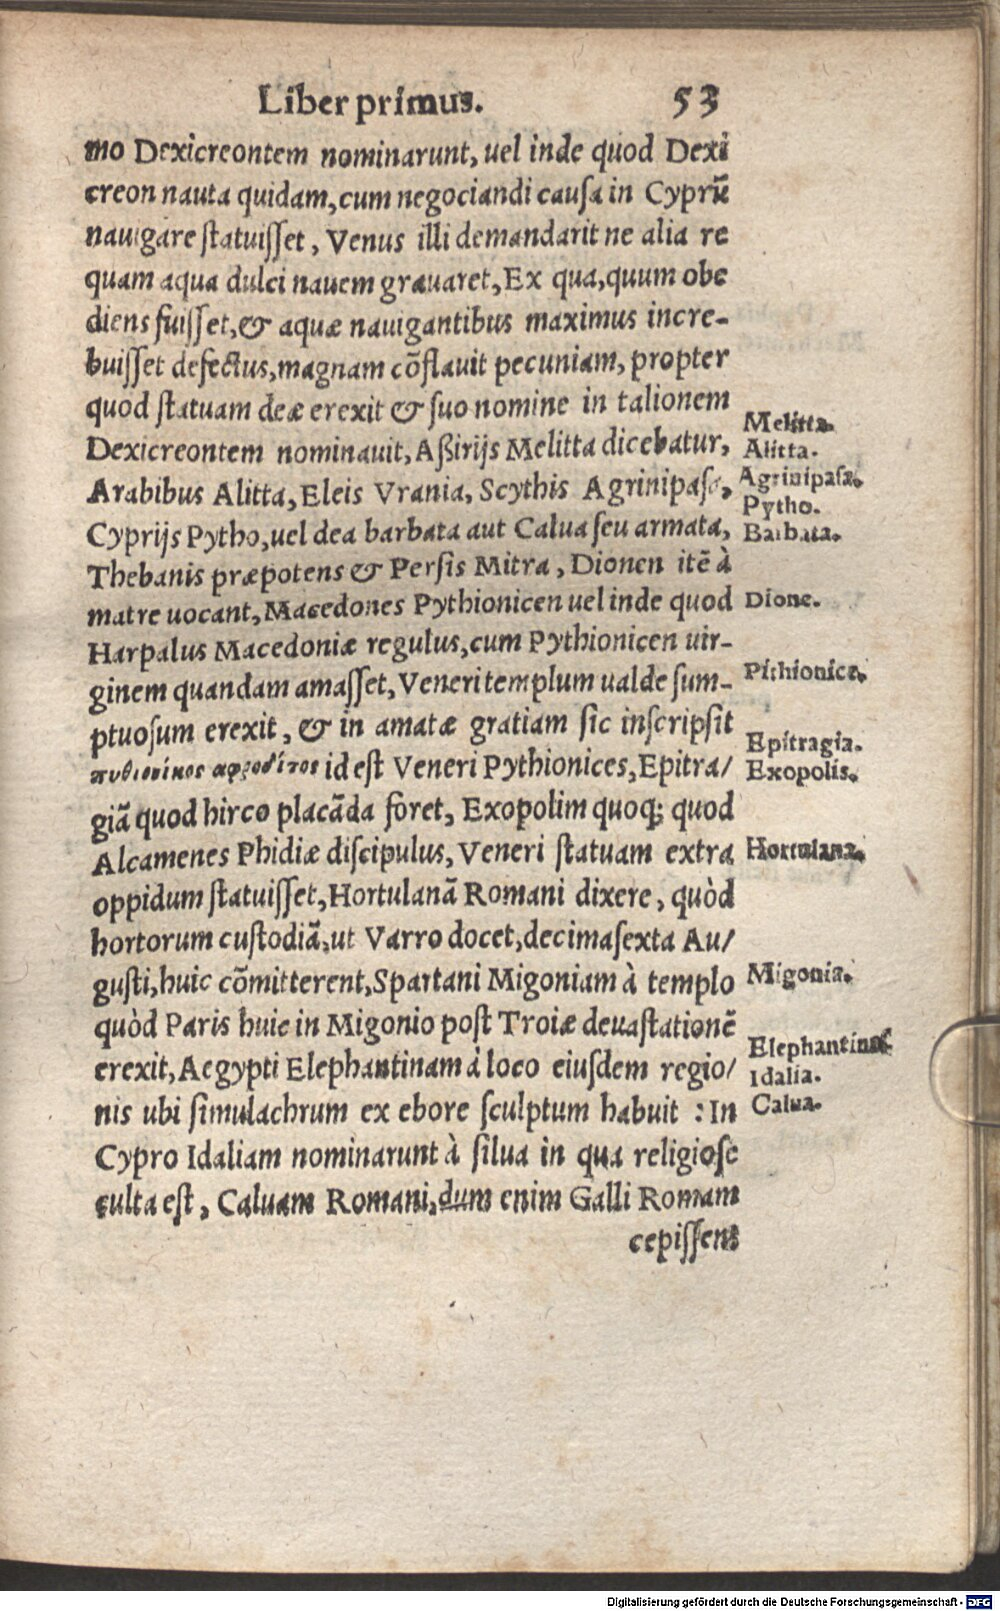 Liber primus. 53
mo Dexicreontem nominarunt, uel inde quod Dexi
creon nauta quidam, cum negociandi causa in Cyprũ
nauigare ſtatuiſſet, Venus illi demandarit ne alia re
quam aqua dulci nauem grauaret, Ex qua, quum obe
diens fuiſſet, & aquæ nauigantibus maximus incre-
buiſſet defectus, magnam cõflauit pecuniam, propter
quod ſtatuam deæ erexit & ſuo nomine in talionem
Dexicreontem nominauit, Aßirijs Melitta dicebatur,
Melitta.
Arabibus Alitta, Eleis Vrania, Scythis Agrinipaſa,
Alitta.
Agrinipaſa.
Cyprijs Pytho, uel dea barbata aut Calua ſeu armata,
Pytho.
Barbata.
Thebanis præpotens & Perſis Mitra, Dionen itẽ à
matre uocant, Macedones Pythionicen uel inde quod
Dione.
Harpalus Macedoniæ regulus, cum Pythionicen uir-
ginem quandam amaſſet, Veneri templum ualde ſum-
Pithionice.
ptuoſum erexit, & in amatæ gratiam ſic inſcripſit
Epitragia.
πυθιονίκος αφροδίτος id eſt Veneri Pythionices, Epitra/
Exopolis.
giã quod hirco placãda foret, Exopolim quoq; quod
Alcamenes Phidiæ diſcipulus, Veneri ſtatuam extra
Hortulana.
oppidum ſtatuiſſet, Hortulanã Romani dixere, quòd
hortorum cuſtodiã, ut Varro docet, decimaſexta Au/
guſti, huic cõmitterent, Spartani Migoniam à templo
Migonia.
quòd Paris huic in Migonio poſt Troiæ deuaſtationẽ
erexit, Aegypti Elephantinam à loco eiuſdem regio/
Elephantina.
Idalia.
nis ubi ſimulachrum ex ebore ſculptum habuit : In
Calua.
Cypro Idaliam nominarunt à ſilua in qua religioſe
culta eſt, Caluam Romani, dum enim Galli Romam
cepiſſent
Digitalisierung gefördert durch die Deutsche Forschungsgemeinschaft - DFG